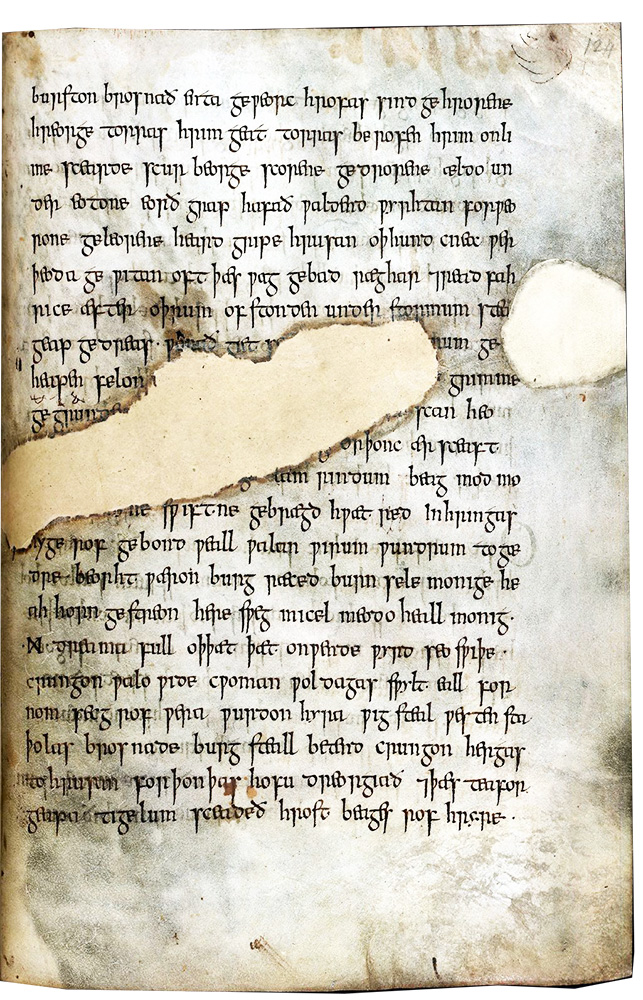 burſton broſnað enta geƿeorc hrofas sind gehrorene
hreorge torras hrim geat torras berofen hrim onli
me scearde scur beorge scorene gedrorene ældo un
der eotone eorð grap hafað ƿaldend ƿyrhtan forƿeo
rone geleorene heard gripe hrusan oþhund cnea ƿer
þeoda ge ƿitan oft þæs ƿag gebad ræghar ⁊read fah
rice æfter oþrum ofstonden under stormum steap
geap gedreas· ƿunað giet num ge
heapen felon grimme
gegrunden scan heo
orþonc ær sceaft
g lam rindum beag mod mo
ne sƿiftne gebrægd hƿæt red Inhringas
hyge rof gebond ƿeall ƿalan ƿirum ƿundrum togæ
dre beorht ƿæron burg ræced burn sele monige he
ah horn gestreon here sƿeg micel meodo heall monig·
·ᛗ· dreama full oþþæt þæt onƿende ƿyrd seo sƿiþe·
crungon ƿalo ƿide cƿoman ƿol dagas sƿylt eall for
nom secg rof ƿera ƿurdon hyra ƿig steal ƿesten sta
þolas brosnade burg steall betend crungon hergas
to hrusan forþon þas hofu dreorgiað ⁊þæs teafor
geapa tigelum sceadeð hrost beages rof hryre·